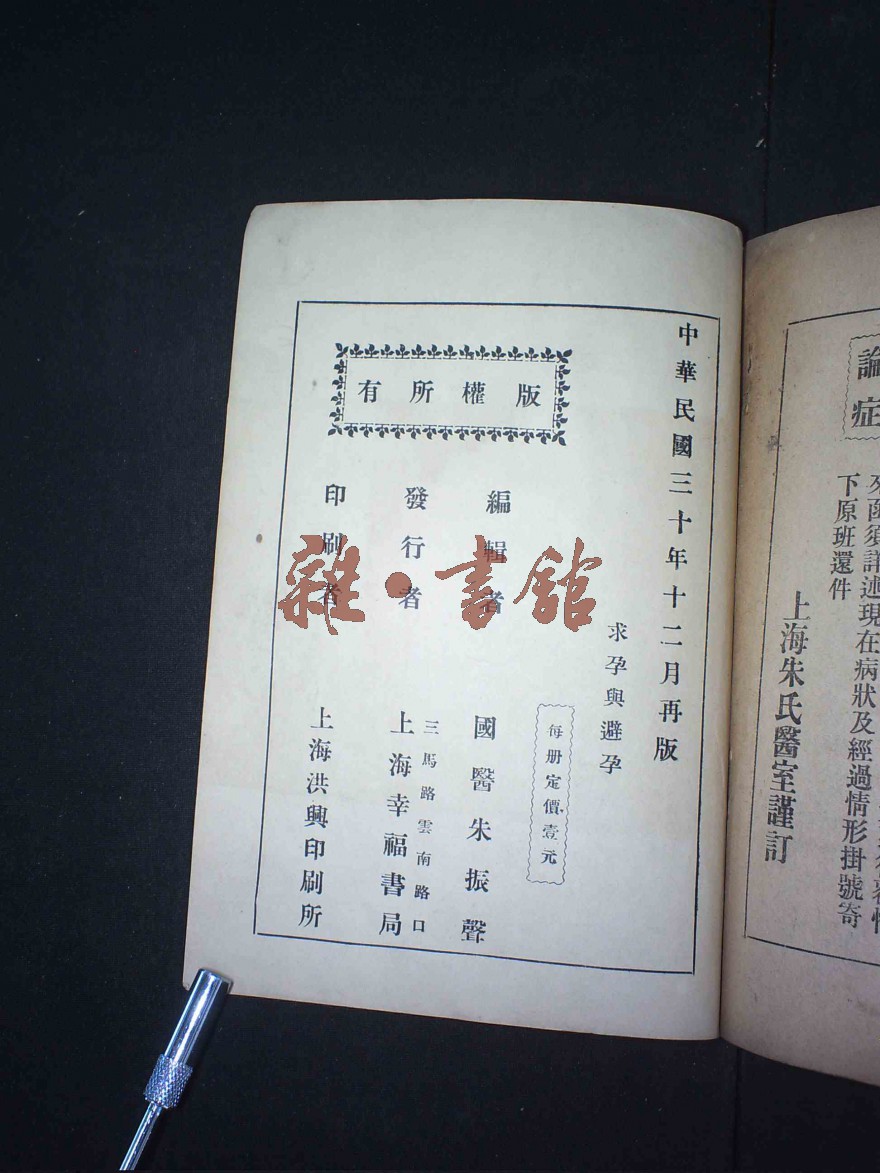 論症
來函須詳述現在病狀及經過情形掛號寄
下原班還件
上海朱氏醫室謹訂
中華民國三十年十二月再版
求孕與避孕
每册定價壹元
版權所有
編輯者 國醫朱振聲
發行者 三馬路雲南路口
上海幸福書局
印刷者 上海洪興印刷所
雜·書館